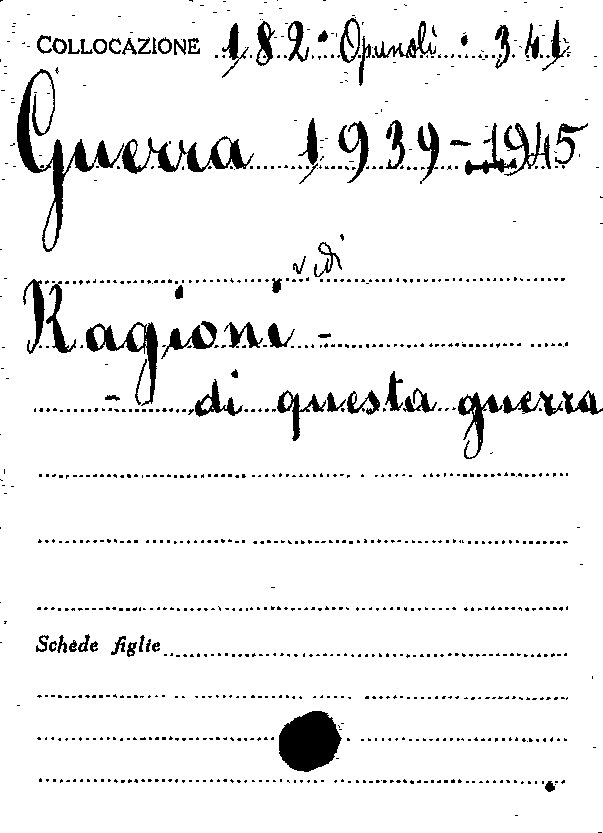 COLLOCAZIONE 182 · Opuscoli · 341
Guerra 1939-1945
vedi
Ragioni -
- di questa guerra
Schede figlie